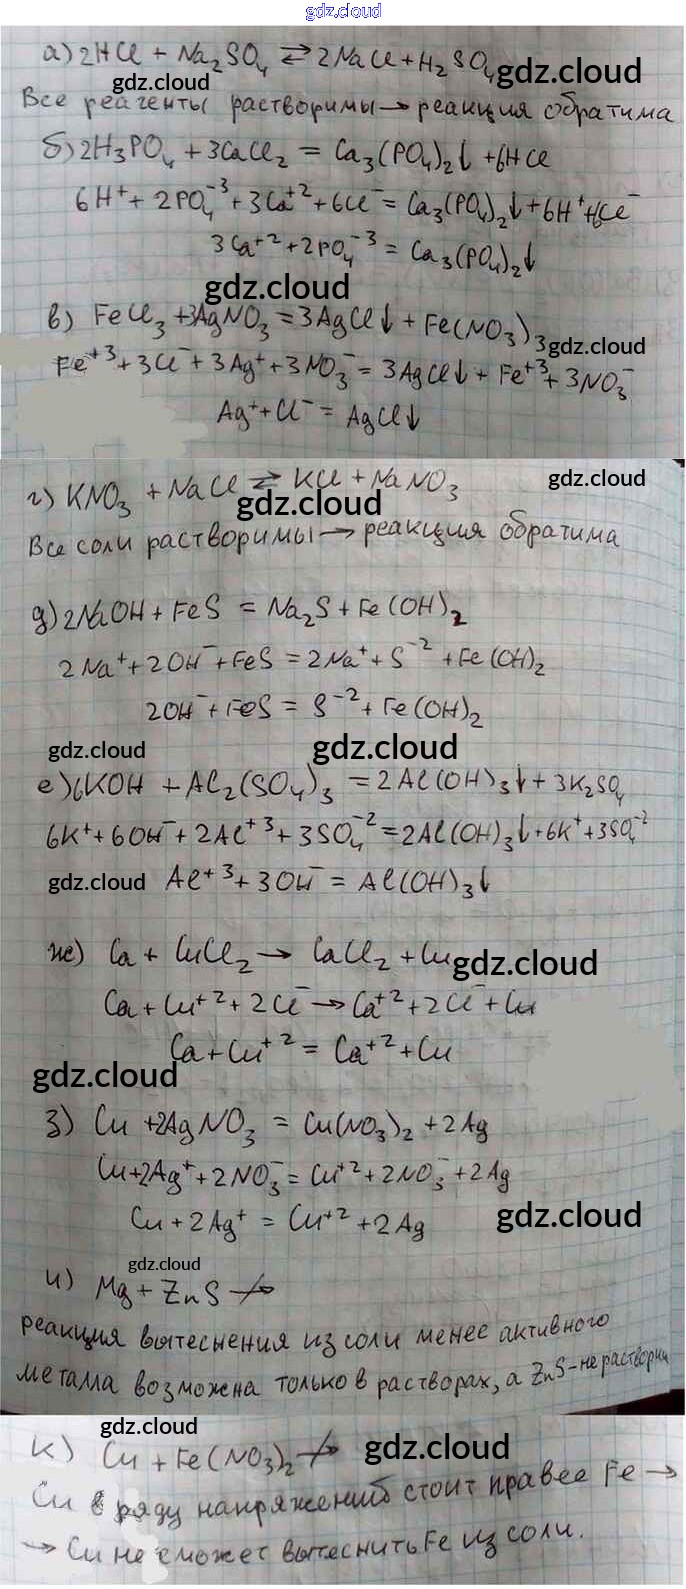 gdz.cloud
а) 2HCl + Na₂SO₄ ⇄ 2NaCl + H₂SO₄
gdz.cloud gdz.cloud
Все реагенты растворимы → реакция обратима
б) 2H₃PO₄ + 3CaCl₂ = Ca₃(PO₄)₂↓ + 6HCl
6H⁺ + 2PO₄⁻³ + 3Ca⁺² + 6Cl⁻ = Ca₃(PO₄)₂↓ + 6H⁺ + 6Cl⁻
3Ca⁺² + 2PO₄⁻³ = Ca₃(PO₄)₂↓
gdz.cloud
в) FeCl₃ + 3AgNO₃ = 3AgCl↓ + Fe(NO₃)₃
gdz.cloud
Fe⁺³ + 3Cl⁻ + 3Ag⁺ + 3NO₃⁻ = 3AgCl↓ + Fe⁺³ + 3NO₃⁻
Ag⁺ + Cl⁻ = AgCl↓
gdz.cloud
г) KNO₃ + NaCl ⇄ KCl + NaNO₃
gdz.cloud
Все соли растворимы → реакция обратима
д) 2NaOH + FeS = Na₂S + Fe(OH)₂
2Na⁺ + 2OH⁻ + FeS = 2Na⁺ + S⁻² + Fe(OH)₂
2OH⁻ + FeS = S⁻² + Fe(OH)₂
gdz.cloud gdz.cloud
е) 6KOH + Al₂(SO₄)₃ = 2Al(OH)₃↓ + 3K₂SO₄
6K⁺ + 6OH⁻ + 2Al⁺³ + 3SO₄⁻² = 2Al(OH)₃↓ + 6K⁺ + 3SO₄⁻²
gdz.cloud Al⁺³ + 3OH⁻ = Al(OH)₃↓
ж) Ca + CuCl₂ → CaCl₂ + Cu
gdz.cloud
Ca + Cu⁺² + 2Cl⁻ → Ca⁺² + 2Cl⁻ + Cu
Ca + Cu⁺² = Ca⁺² + Cu
gdz.cloud
з) Cu + 2AgNO₃ = Cu(NO₃)₂ + 2Ag
Cu + 2Ag⁺ + 2NO₃⁻ = Cu⁺² + 2NO₃⁻ + 2Ag
Cu + 2Ag⁺ = Cu⁺² + 2Ag
gdz.cloud
gdz.cloud
и) Mg + ZnS ↛
реакция вытеснения из соли менее активного
металла возможна только в растворах, а ZnS - не раствори
gdz.cloud
к) Cu + Fe(NO₃)₂ ↛
gdz.cloud
Cu в ряду напряжений стоит правее Fe →
→ Cu не сможет вытеснить Fe из соли.